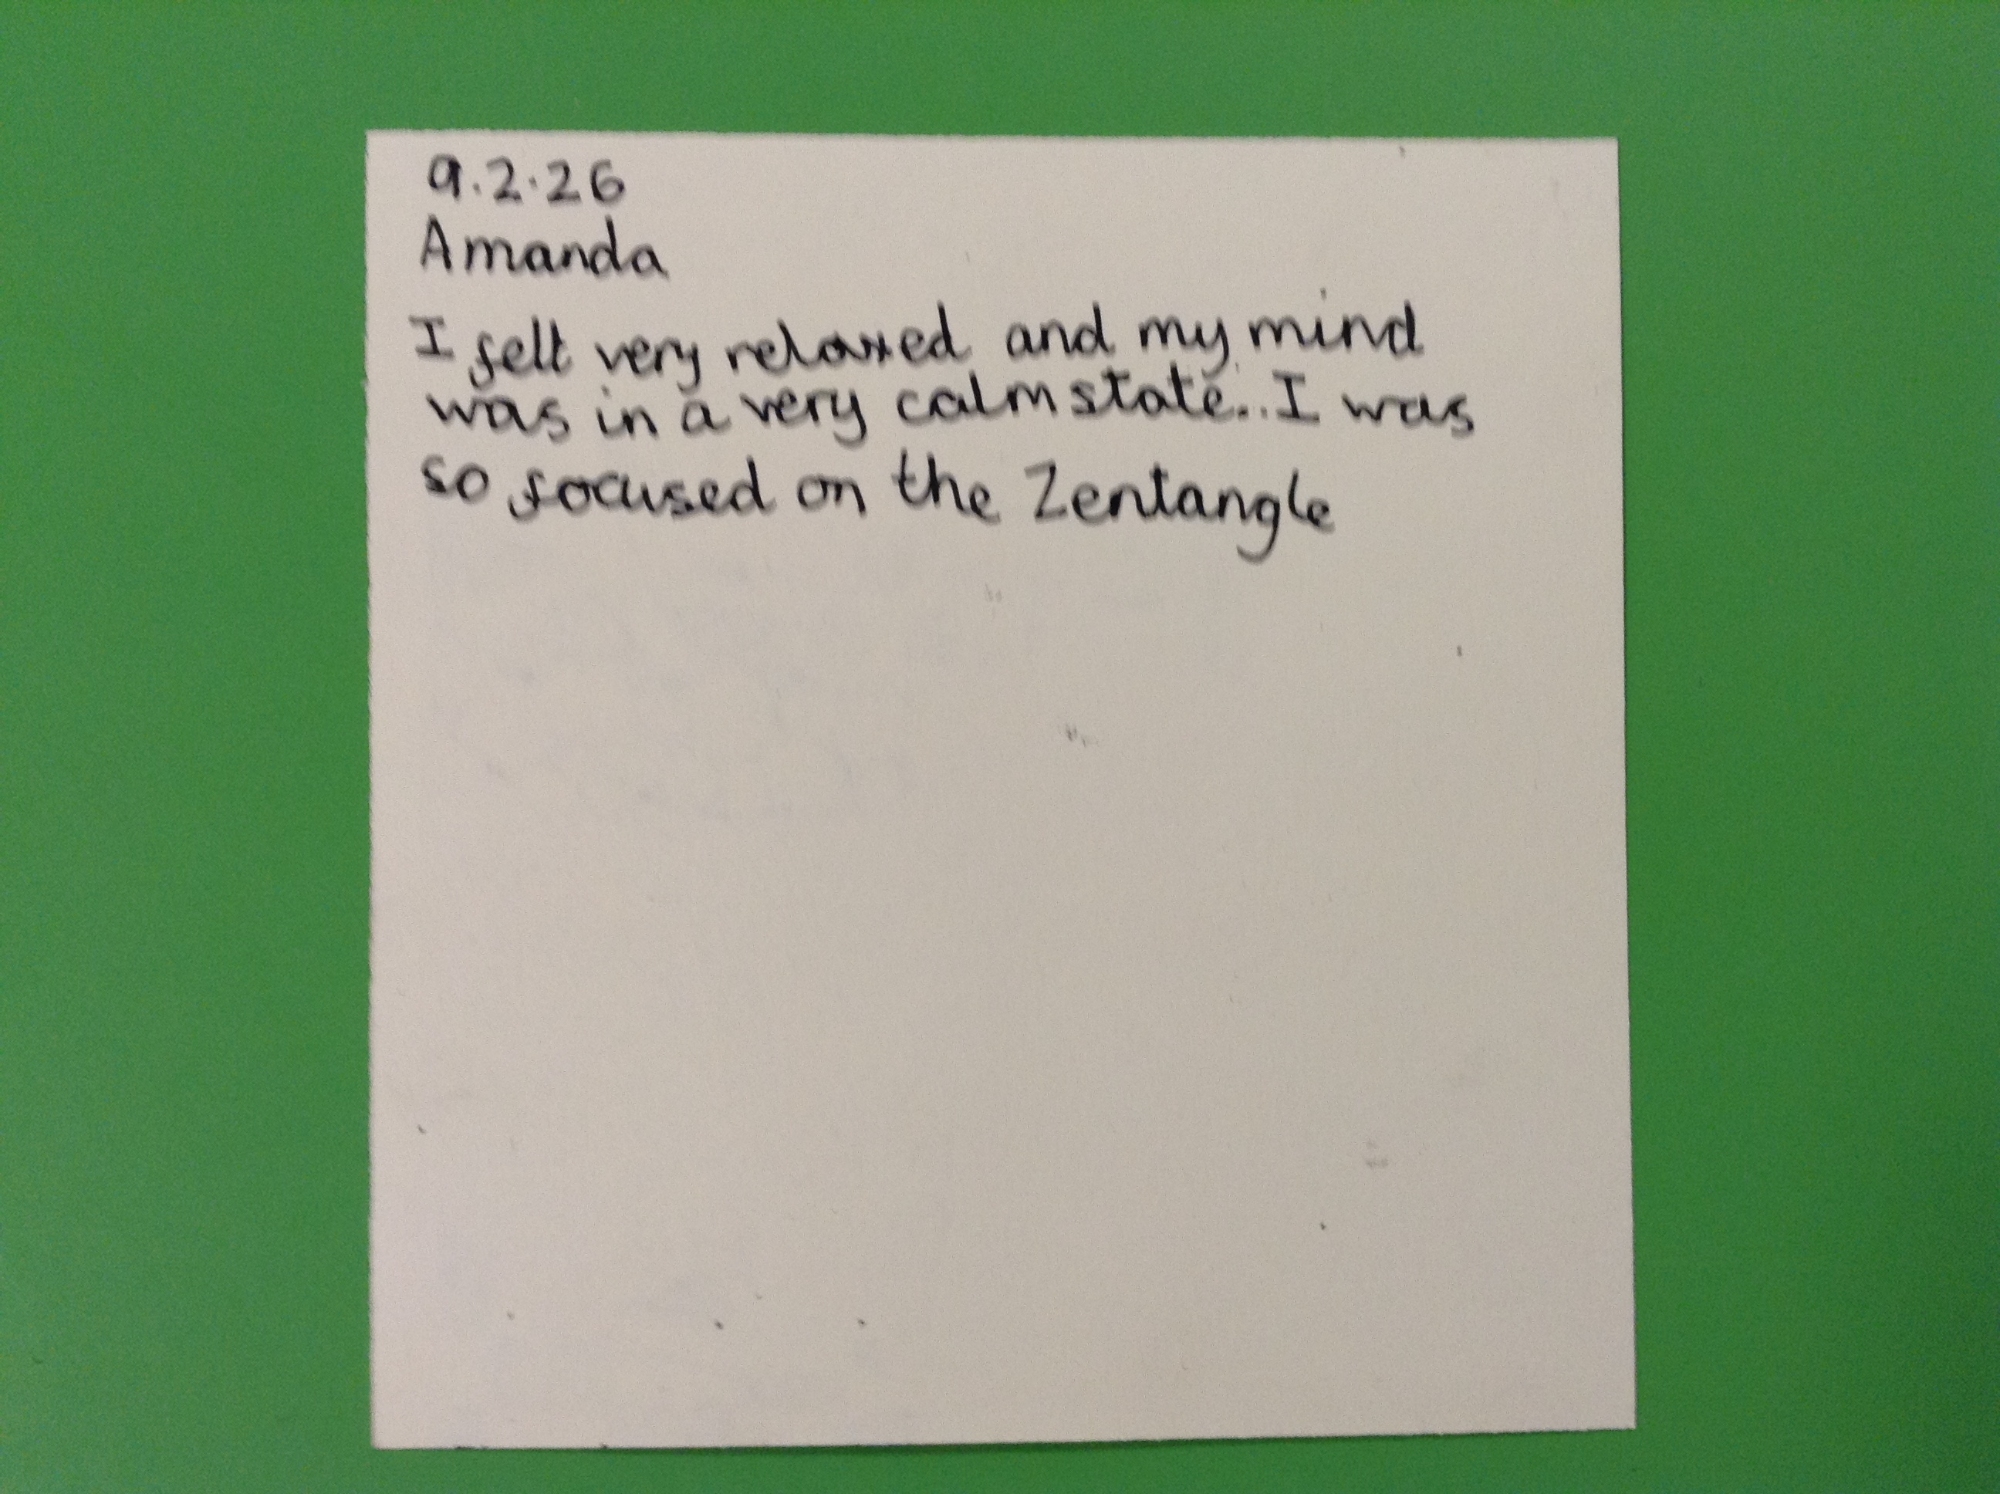 9.2.26
Amanda
I felt very relaxed and my mind
was in a very calm state.. I was
so focused on the Zentangle